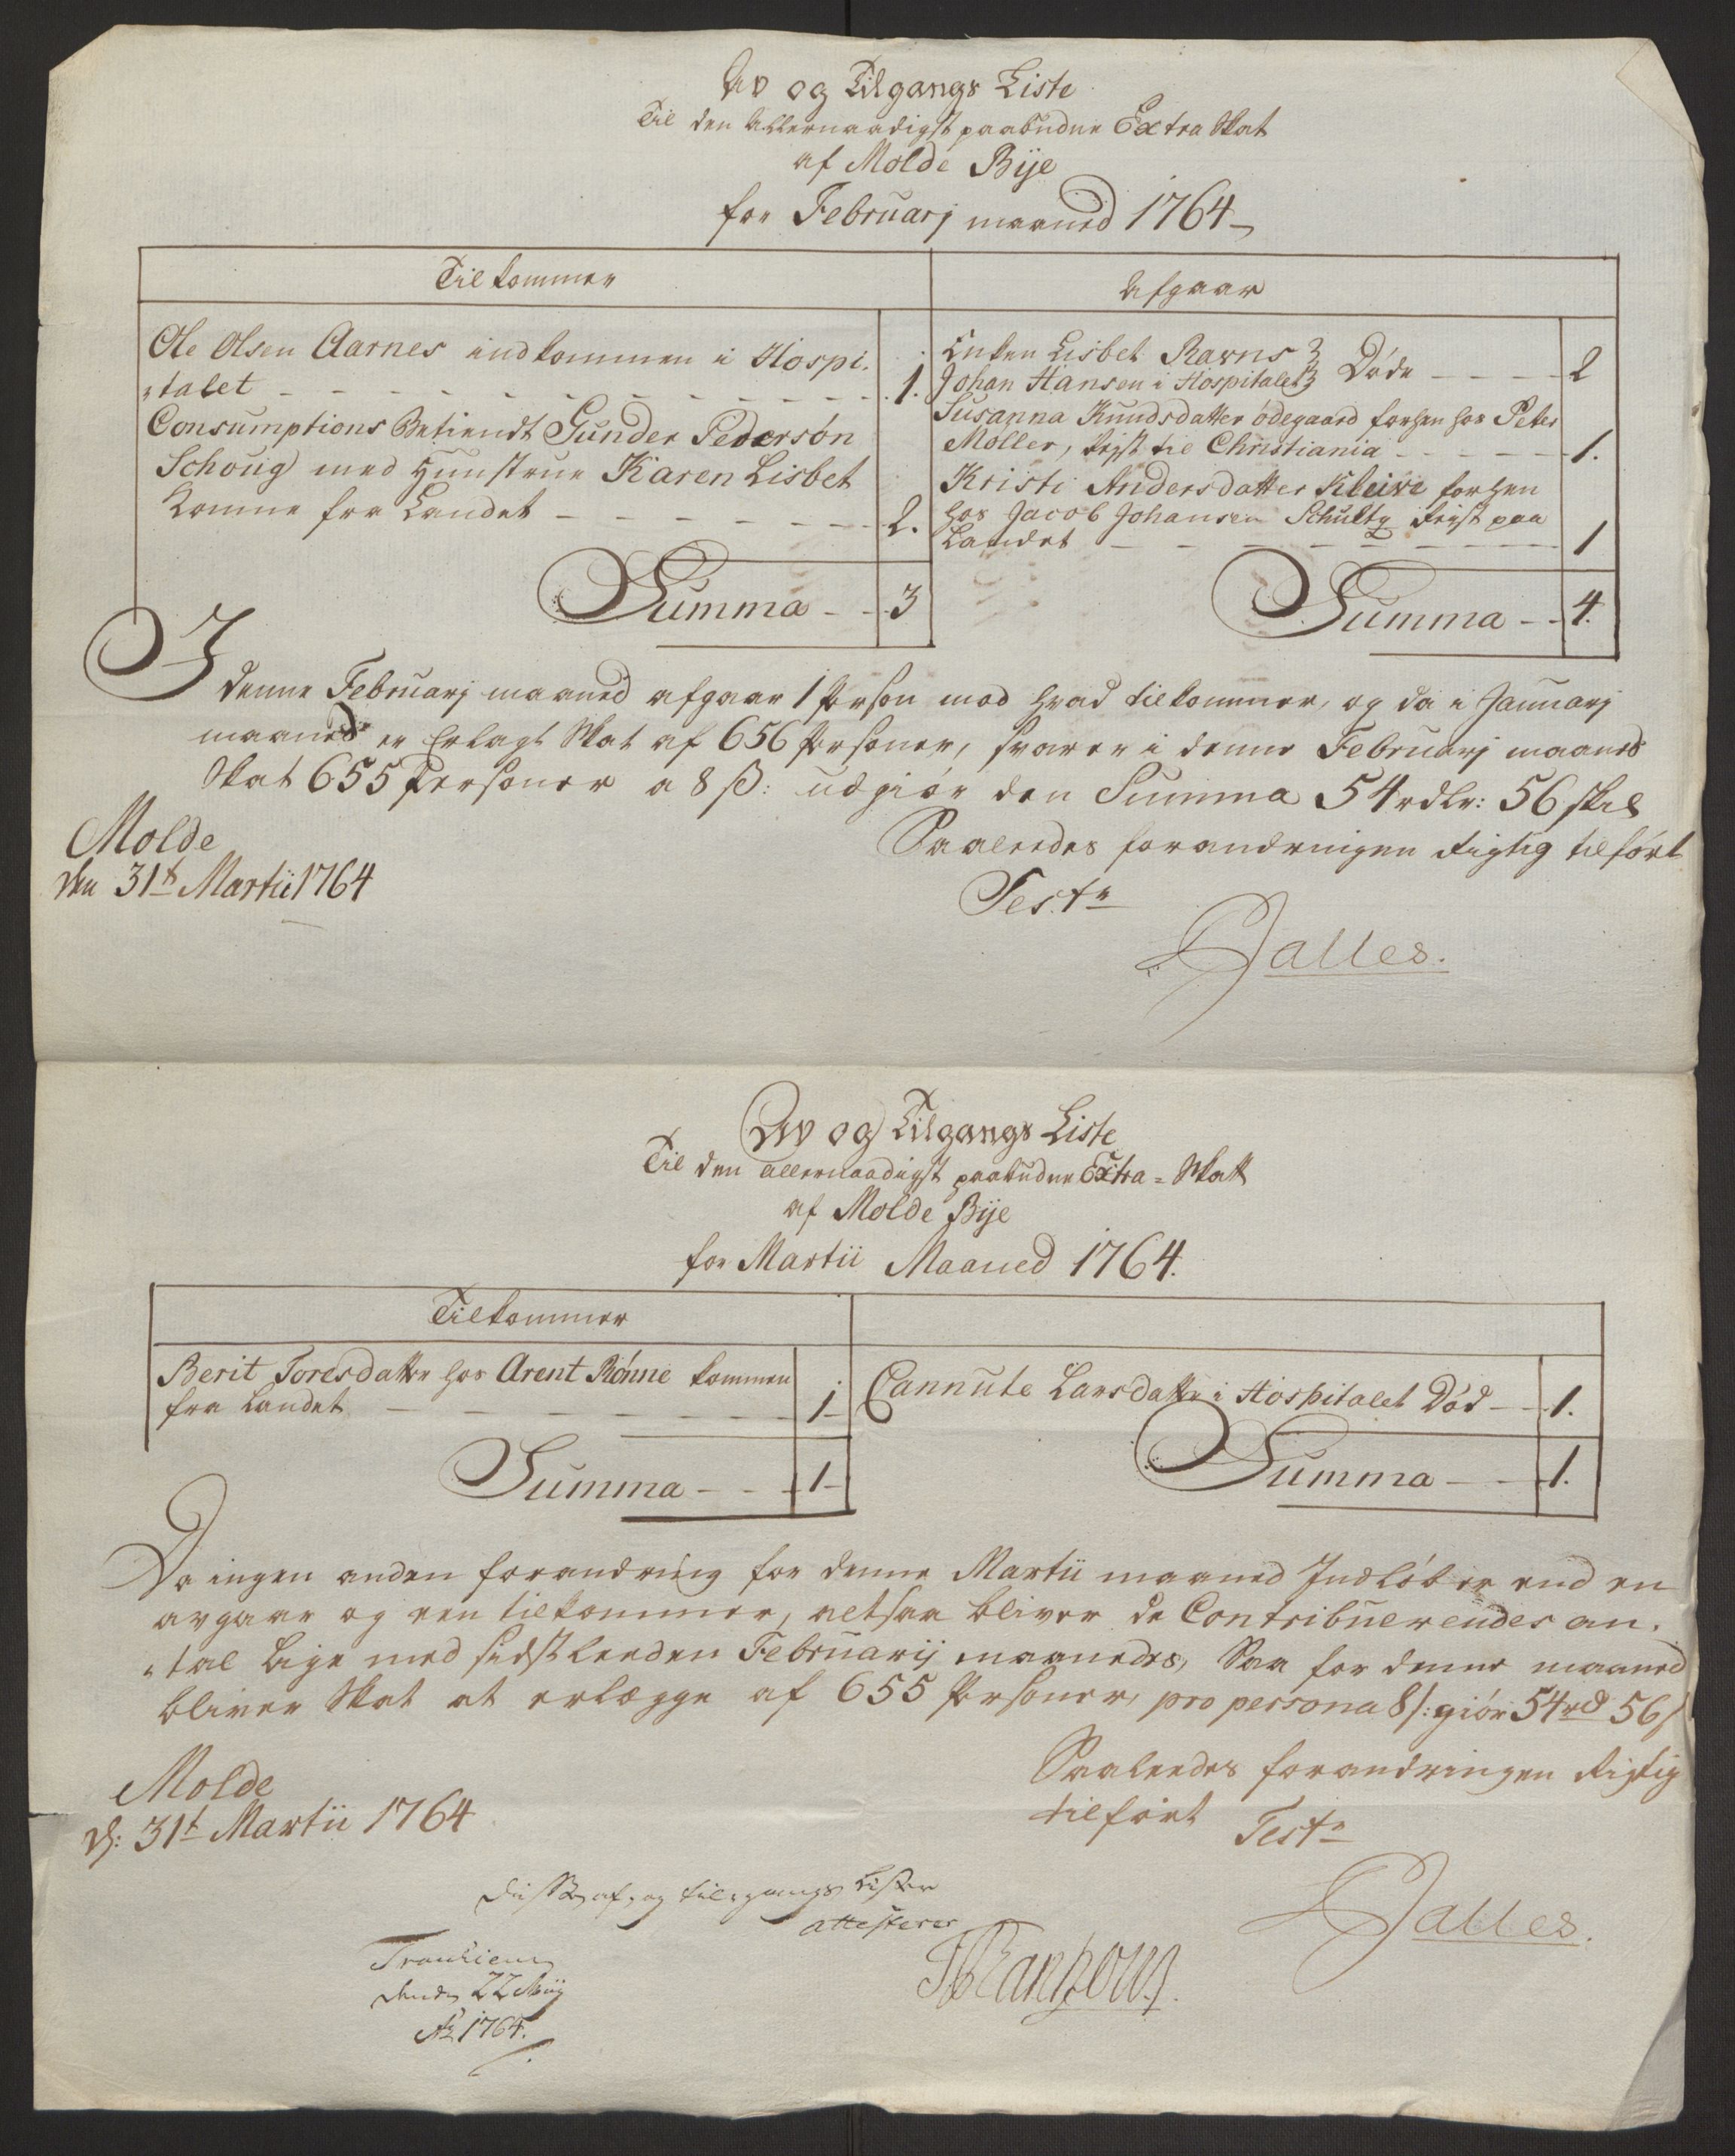 Av og Tilgangs Liste
Til den Allernaadigst paabudne Extra Skat
af Molde Bije
for Februarj maaned 1764
Tilkommer
Afgaar
Ole Olsen Aarnes indkommen i Hospi-
talet - - - 1.
Consumptions Betiendt Gunder Pedersøn
Schoüg med Hunstrue Karen Lisbet
komne fra Landet - - - 2.
Summa - - 3
Enken Lisbet Ravns
Johan Hansen i Hospitalet Døde - - - 2
Susanna Knudsdatter ødegaard forhen hos Peter
Møller, Rejst til Christiania - - - 1.
Kristi Andersdatter Kleive forhen
hos Jacob Johansen Schultz Rejst paa
Landet - - - 1
Summa - - 4.
I denne Februarj maaned afgaar 1 Person mod hvad tilkommer, og da i Januarj
maaned er Erlagt Skat af 656 Personer, svarer i denne Februarj maaned
Skat 655 Personer a 8 ß: udgiør den Summa 54 rdlr: 56 skil
Molde
den 31t Martii 1764
Saaleedes forandringen Rigtig tilført
Teste
Dalles.
Av og Tilgangs Liste
Til den allernaadigst paabudne Extra = Skatt
af Molde Bije
for Martii Maaned 1764.
Tilkommer
Berit Toresdatter hos Arent Rønne kommen
fra Landet - - - 1
Summa - - - 1
Cannute Larsdatter i Hospitalet Død - - 1.
Summa - - - 1.
Da ingen anden forandring for denne Martii maaned Indløber end en
avgaar og een tilkommer, altsaa bliver de Contribuerendes an-
tal lige med sidstleeden Februarij maaneds, Saa for denne maaned
bliver Skat at erlægge af 655 Personer, pro persona 8 ß: giør 54 rd 56 ß
Molde
d: 31t Martii 1764
Saaleedes forandringen Rigtig
tilført Teste
Dalles.
Disse af- og til-gangs Lister
attesterer
Tronhiem
denden 22 Maij
Ao 1764.